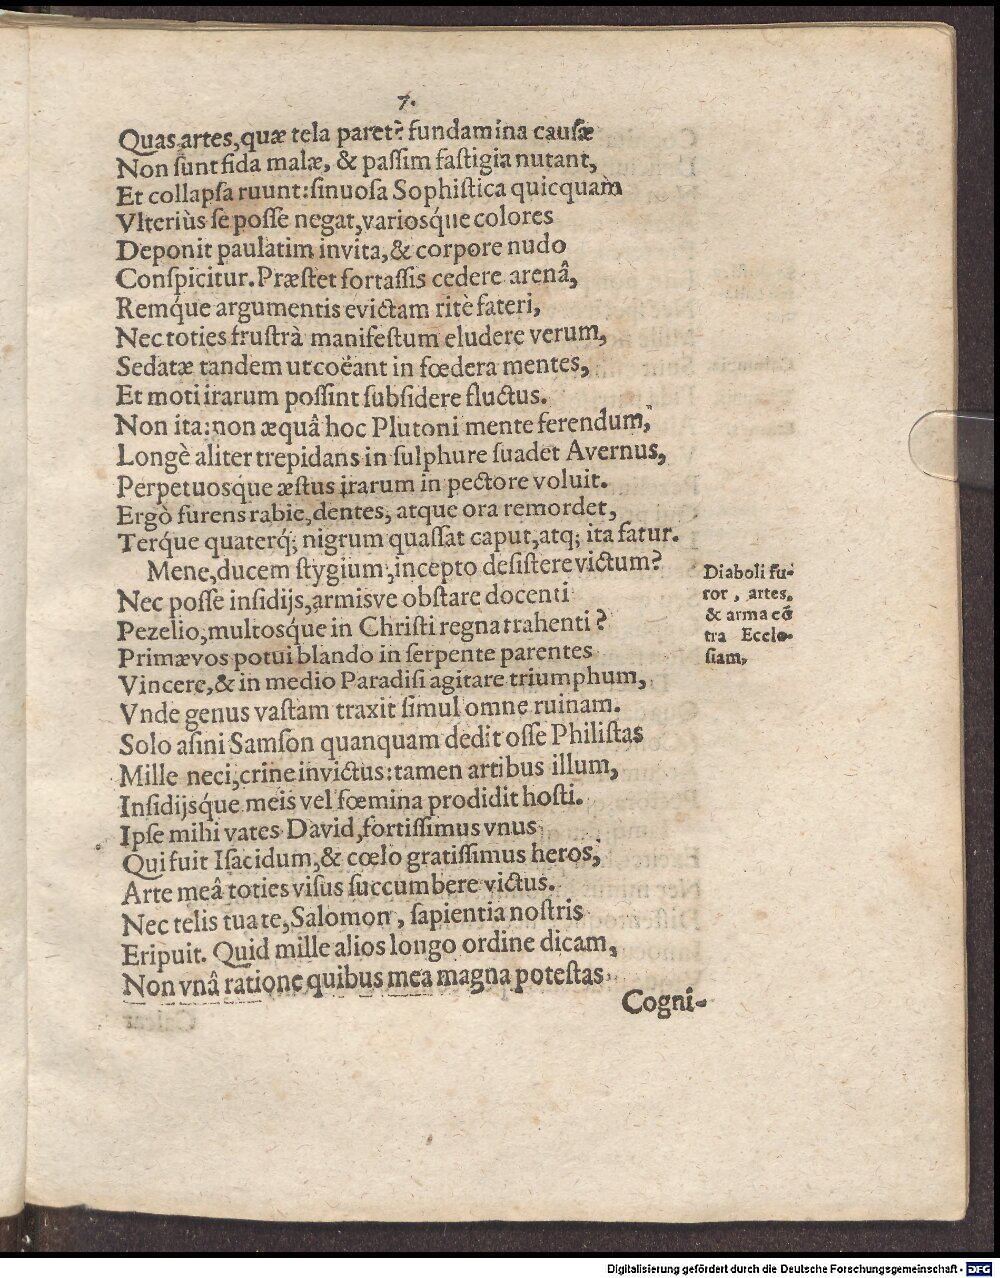 7.
Quas artes, quæ tela paret? fundamina causæ
Non sunt fida malæ, & passim fastigia nutant,
Et collapsa ruunt: sinuosa Sophistica quicquam
Vlteriùs se posse negat, variosq́ue colores
Deponit paulatim invita, & corpore nudo
Conspicitur. Præstet fortassis cedere arenâ,
Remq́ue argumentis evictam ritè fateri,
Nec toties frustrà manifestum eludere verum,
Sedatæ tandem ut coëant in fœdera mentes,
Et moti irarum possint subsidere fluctus.
Non ita: non æquâ hoc Plutoni mente ferendum,
Longè aliter trepidans in sulphure suadet Avernus,
Perpetuosque æstus irarum in pectore voluit.
Ergò furens rabie, dentes, atque ora remordet,
Terq́ue quaterq́; nigrum quassat caput, atq; ita fatur.
Mene, ducem stygium, incepto desistere victum?
Nec posse insidijs, armisve obstare docenti
Pezelio, multosq́ue in Christi regna trahenti?
Primævos potui blando in serpente parentes
Vincere, & in medio Paradisi agitare triumphum,
Vnde genus vastam traxit simul omne ruinam.
Solo asini Samson quanquam dedit osse Philistas
Mille neci, crine invictus: tamen artibus illum,
Insidijsq́ue meis vel fœmina prodidit hosti.
Ipse mihi vates David, fortissimus vnus
Qui fuit Isacidum, & cœlo gratissimus heros,
Arte meâ toties visus succumbere victus.
Nec telis tua te, Salomon, sapientia nostris
Eripuit. Quid mille alios longo ordine dicam,
Non vnâ ratione quibus mea magna potestas
Cogni-
Diaboli fu-
ror, artes,
& arma cõ
tra Eccle-
siam,
Digitalisierung gefördert durch die Deutsche Forschungsgemeinschaft - DFG